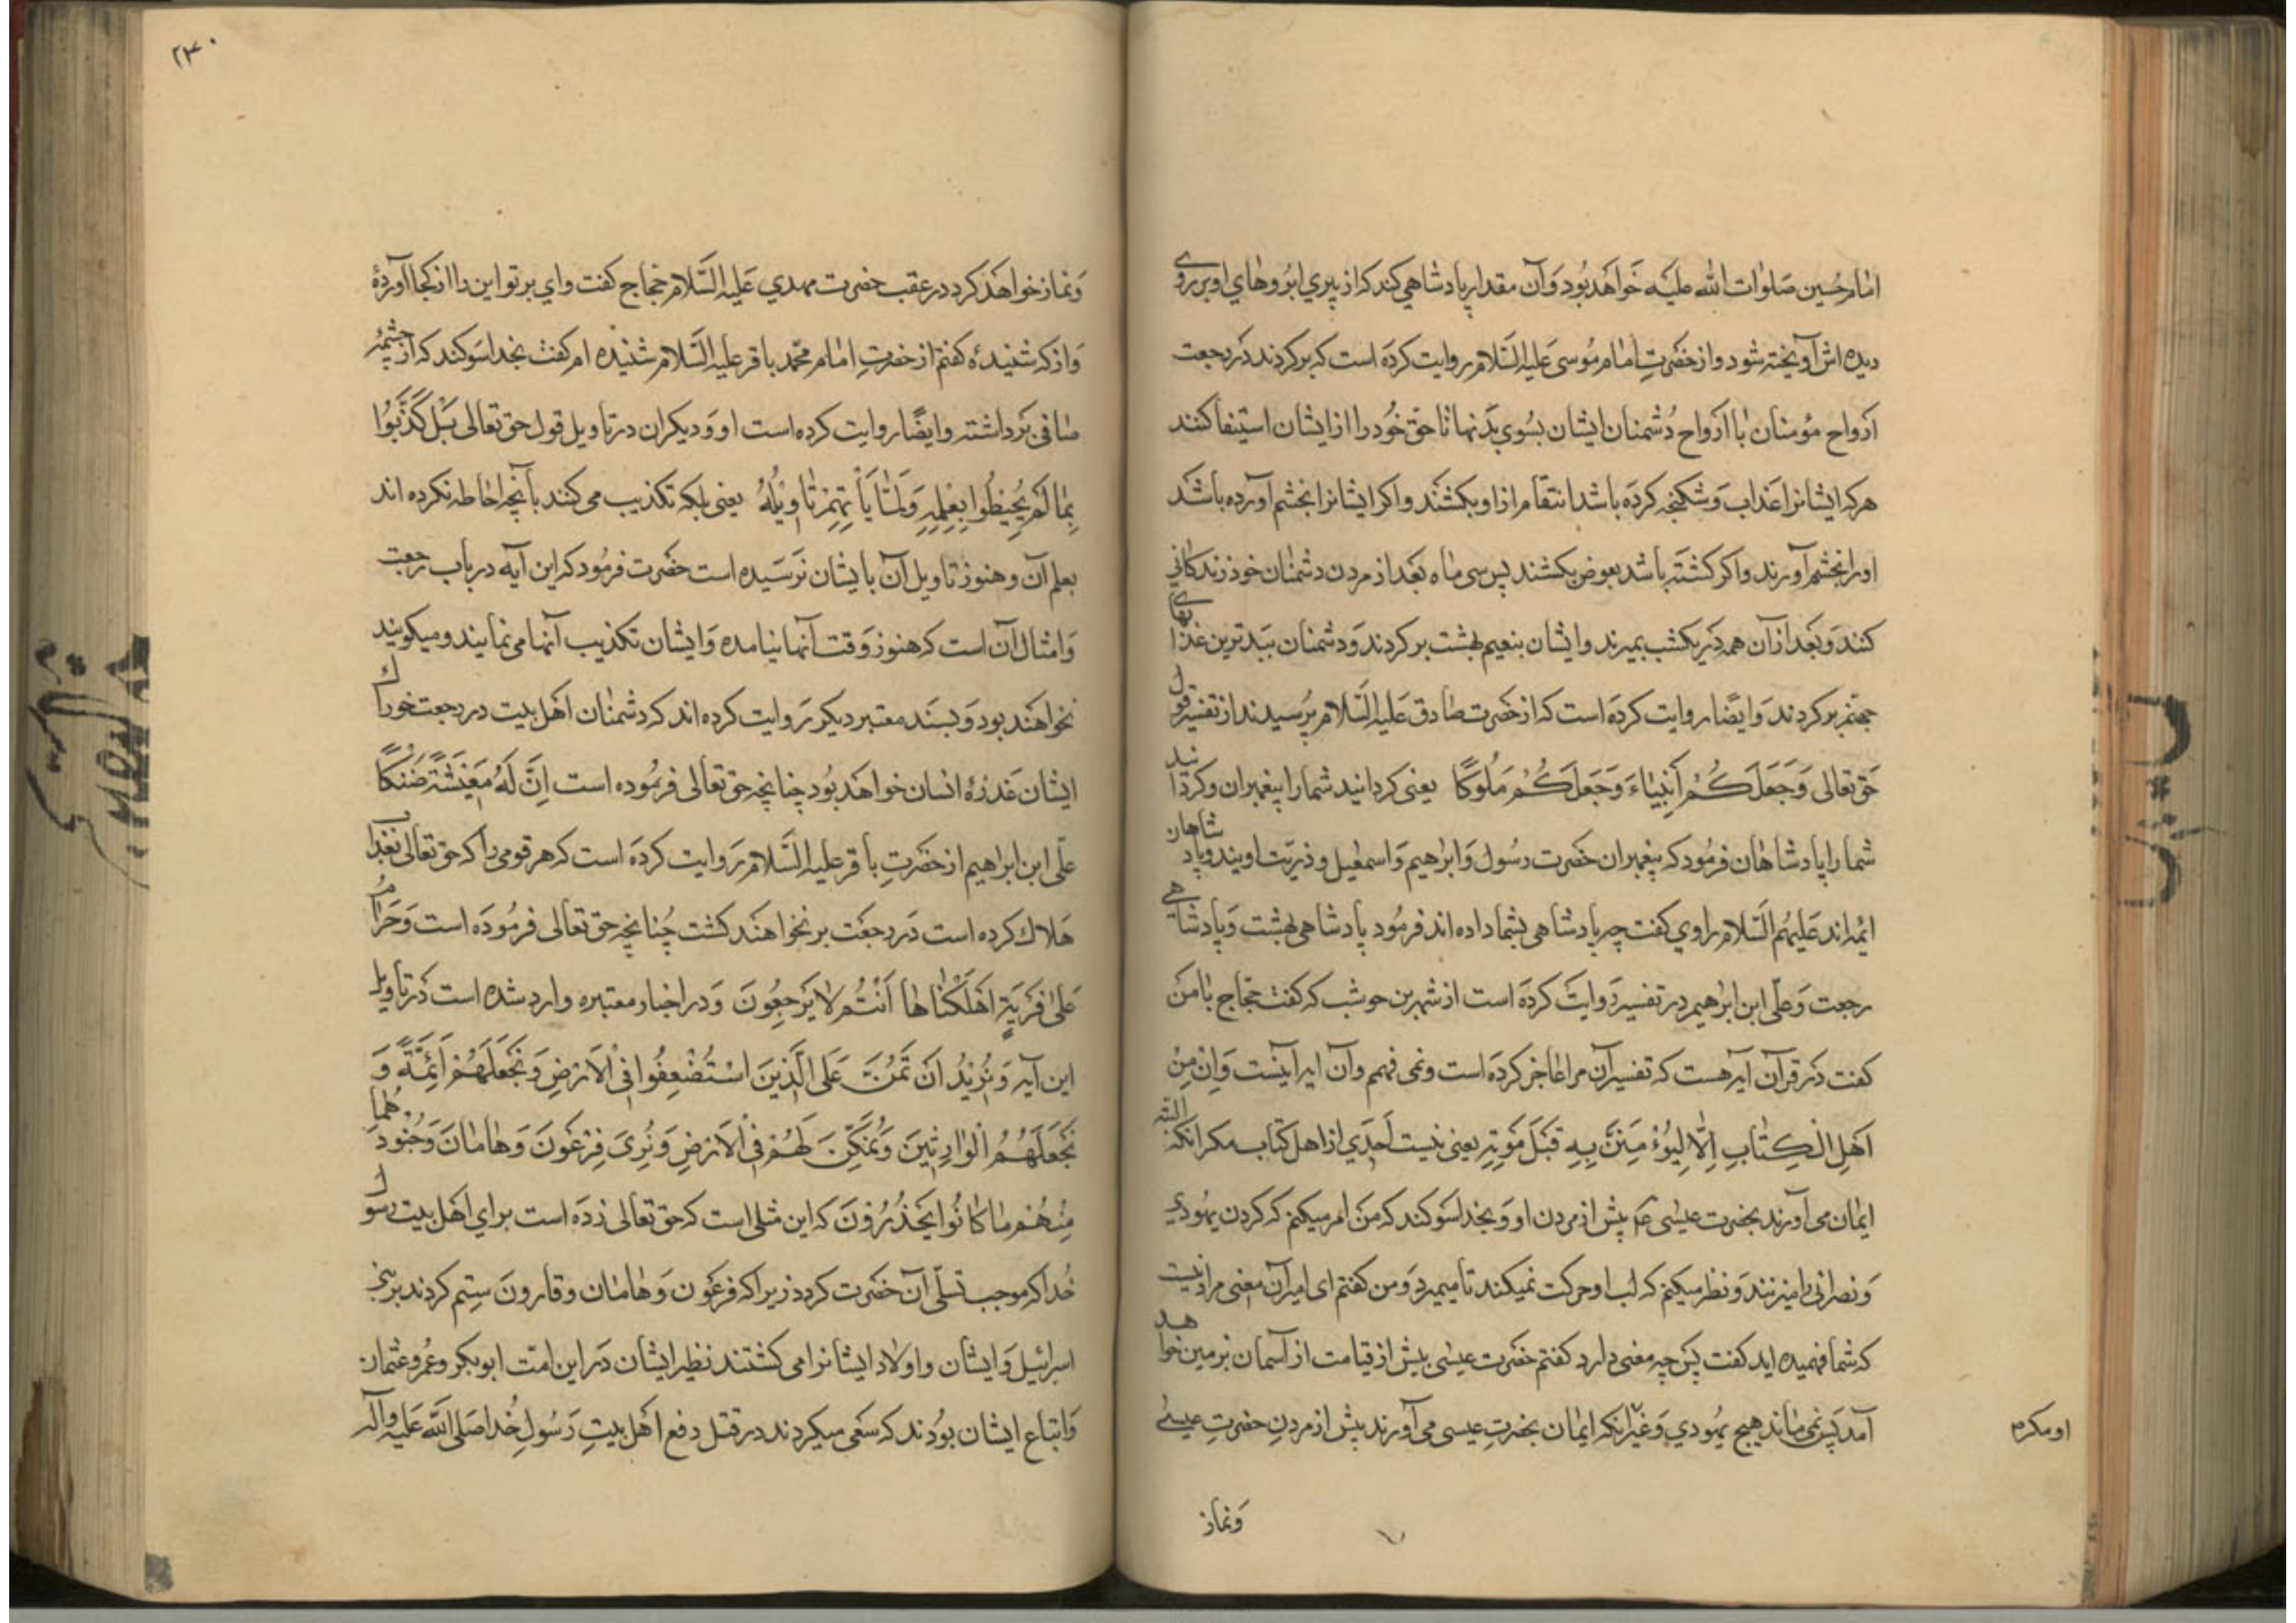 امام حسین صلوات الله علیه خواهد بود و آن مقدار پادشاهی کند که از پیری ابروهای او بر روی
دیده اش آویخته شود و از حضرت امام موسی علیه السلام روایت کرده است که برگردند در رجعت
ارواح مؤمنان با ارواح دشمنان ایشان بسوی بدنها تا حق خود را از ایشان استیفا کنند
هر که ایشانرا عذاب و شکنجه کرده باشد انتقام از او بکشند و اکر ایشانرا بخشم آورده باشد
اورا بخشم آورند و اکر کشته باشد بعوض بکشند پس سی ماه بعد از مردن دشمنان خود زندکانی
کنند و بعد از آن همه در یکشب بمیرند و ایشان بنعیم بهشت برکردند و دشمنان ببدترین عذابهای
جهنم برکردند و ایضا روایت کرده است که از حضرت صادق علیه السلام پرسیدند از تفسیر قول
حق تعالی وَجَعَلَكُمْ أَنْبِيَاءَ وَجَعَلَكُمْ مُلُوكًا یعنی کردانید شما را پیغمبران و کردانید
شما را پادشاهان فرمود که پیغمبران حضرت رسول و ابراهیم و اسمعیل و ذریت اویند و پادشاهان
ائمه اند علیهم السلام راوی کفت چه پادشاهی بشما داده اند فرمود پادشاهی بهشت و پادشاهی
رجعت و علی ابن ابراهیم در تفسیر روایت کرده است از شهر بن حوشب که کفت حجاج با من
کفت در قرآن آیه هست که تفسیر آن مرا عاجز کرده است و نمی فهمم و آن ایه اینست وَاِنْ مِنْ
اَهْلِ الْكِتَابِ اِلَّا لَيُؤْمِنَنَّ بِهِ قَبْلَ مَوْتِهِ یعنی نیست احدی از اهل کتاب مکر آنکه البته
ایمان می آورند بحضرت عیسی عم پیش از مردن او و بخدا سوکند که من امر میکنم که کردن یهودی
و نصرانی را میزنند و نظر میکنم که لب او حرکت نمیکند تا میمیرد و من کفتم ای امیر آن معنی مراد نیست
که شما فهمیده اید کفت پس چه معنی دارد کفتم حضرت عیسی پیش از قیامت از آسمان بزمین خواهد
آمد پس نمی ماند هیچ یهودی و غیر آنکه ایمان بحضرت عیسی می آورند پیش از مردن حضرت عیسی
و نماز
۲۳۰
و نماز خواهد کرد در عقب حضرت مهدی علیه السلام حجاج کفت وای بر تو این را از کجا آوردهٔ
و از که شنیدهٔ کفتم از حضرت امام محمد باقر علیه السلام شنیده ام کفت بخدا سوکند که از چشمهٔ
صافی برداشته و ایضا روایت کرده است او و دیکران در تاویل قول حق تعالی بَلْ كَذَّبُوا
بِمَا لَمْ يُحِيطُوا بِعِلْمِهِ وَلَمَّا يَأْتِهِمْ تَأْوِيلُهُ یعنی بلکه تکذیب می کنند بآنچه احاطه نکرده اند
بعلم آن و هنوز تاویل آن بایشان نرسیده است حضرت فرمود که این آیه در باب رجعت
و امثال آن است که هنوز وقت آنها نیامده و ایشان تکذیب آنها می نمایند و میکویند
نخواهند بود و بسند معتبر دیکر روایت کرده اند که دشمنان اهل بیت در رجعت خوراک
ایشان عذرهٔ انسان خواهد بود چنانچه حق تعالی فرموده است اِنَّ لَهُ مَعِيشَةً ضَنْكًا
علی ابن ابراهیم از حضرت باقر علیه السلام روایت کرده است که هر قومی را که حق تعالی بعذاب
هلاك کرده است در رجعت بر نخواهند کشت چنانچه حق تعالی فرموده است وَحَرَامٌ
عَلٰى قَرْيَةٍ اَهْلَكْنَاهَا اَنَّهُمْ لَا يَرْجِعُونَ و در اخبار معتبره وارد شده است در تاویل
این آیه وَنُرِيدُ اَنْ نَمُنَّ عَلَى الَّذِينَ اسْتُضْعِفُوا فِي الْاَرْضِ وَنَجْعَلَهُمْ اَئِمَّةً وَ
نَجْعَلَهُمُ الْوَارِثِينَ وَنُمَكِّنَ لَهُمْ فِي الْاَرْضِ وَنُرِيَ فِرْعَوْنَ وَهَامَانَ وَجُنُودَهُمَا
مِنْهُمْ مَا كَانُوا يَحْذَرُونَ که این مثلی است که حق تعالی زده است برای اهل بیت رسول
خدا که موجب تسلی آن حضرت کردد زیرا که فرعون و هامان و قارون ستم کردند بر بنی
اسرائیل و ایشان و اولاد ایشانرا می کشتند نظیر ایشان در این امت ابوبکر و عمر و عثمان
و اتباع ایشان بودند که سعی میکردند در قتل دفع اهل بیت رسول خدا صلی الله علیه و آله